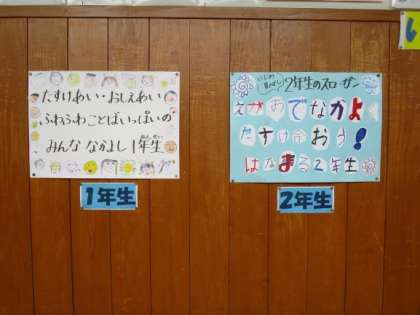 たすけあい・おしえあい
ふわふわことばいっぱいの
みんな なかよし 1年生
1年生
2年生のスローガン
えがおでなかよく
たすけあおう!
はなまる2年生
2年生
い